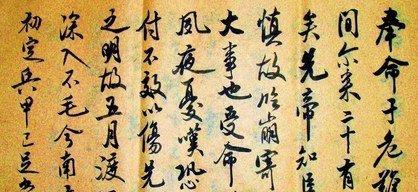 奉命于危難
間尔来二十有
矣先帝知臣
慎故临崩寄
大事也受命
夙夜憂嘆恐
付不效以傷先
之明故五月渡
深入不毛今南
初定兵甲已足